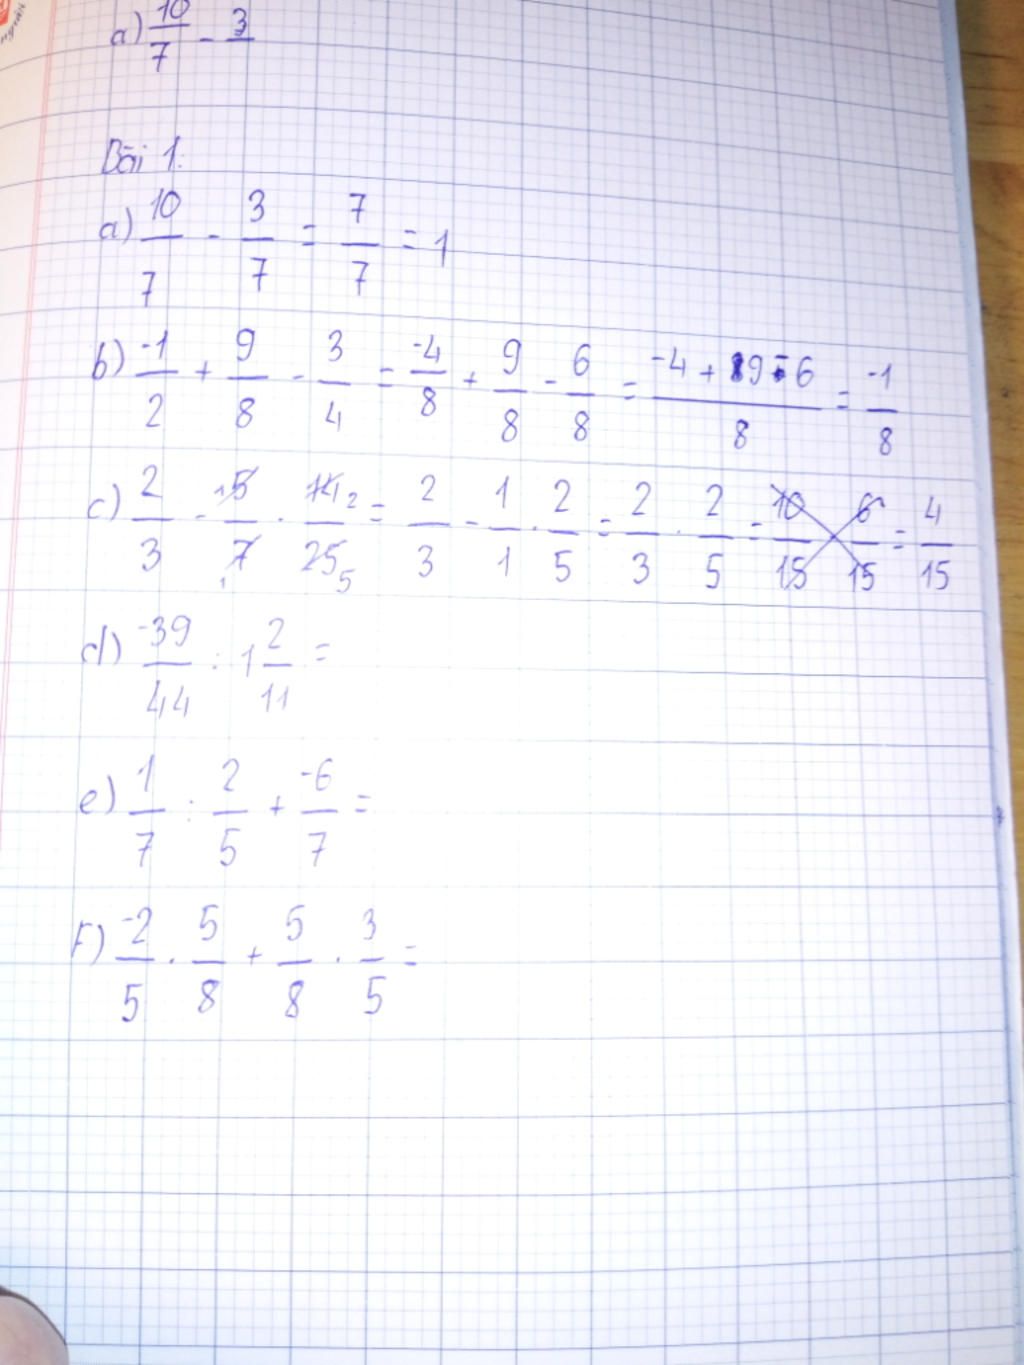 a) 10/7 - 3
Bài 1:
a) 10/7 - 3/7 = 7/7 = 1
b) -1/2 + 9/8 - 3/4 = -4/8 + 9/8 - 6/8 = (-4 + 9 - 6)/8 = -1/8
c) 2/3 - 5/7 · 14/25 = 2/3 - 1/1 · 2/5 = 2/3 · 2/5 = 10/15 6/15 = 4/15
d) -39/44 : 1 2/11 =
e) 1/7 : 2/5 + -6/7 =
F) -2/5 · 5/8 + 5/8 · 3/5 =